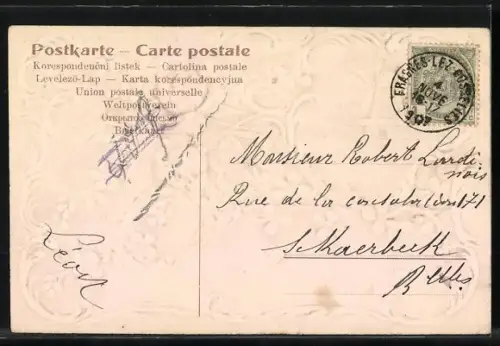 Postkarte – Carte postale
Korespondenční listek – Cartolina postale
Levelező-Lap – Karta korespondencyjna
Union postale universelle
Weltpostverein
Briefkaart
FRASNES-LEZ-
4
NOVE
1907
Monsieur Robert Lardi-
nois
Rue de la consolation 171
Skaerbeek
Bxlles
Léon